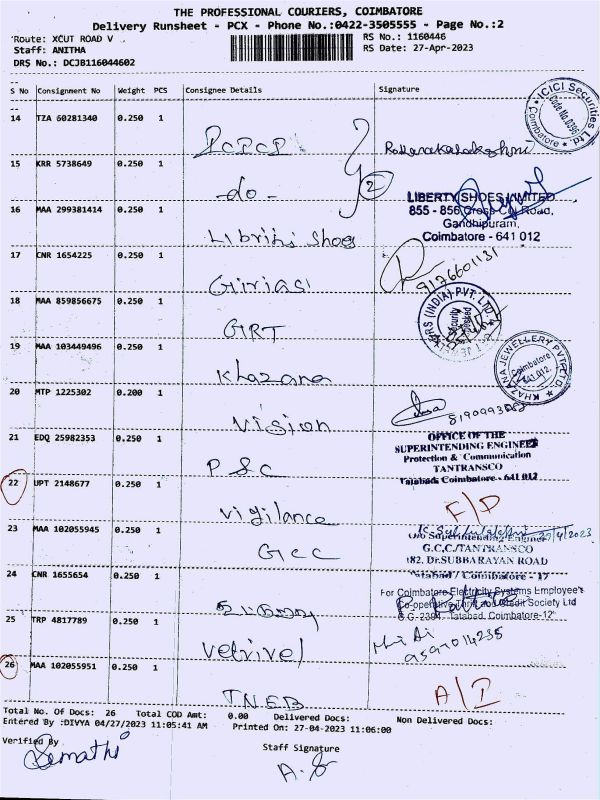 THE PROFESSIONAL COURIERS, COIMBATORE
Delivery Runsheet - PCX - Phone No.:0422-3505555 - Page No.:2
Route: XCUT ROAD V
RS No.: 1160446
Staff: ANITHA
RS Date: 27-Apr-2023
DRS No.: DCJB116044602
S No Consignment No Weight PCS Consignee Details Signature
14 TZA 60281340 0.250 1
ICICI Securities Ltd
Coimbatore
15 KRR 5738649 0.250 1
-do-
2
16 MAA 299381414 0.250 1
Libriti Shoes
LIBERTY SHOES LIMITED
855 - 856, Cross Cut Road,
Gandhipuram,
Coimbatore - 641 012
17 CNR 1654225 0.250 1
Giriasi
9176601131
18 MAA 859856675 0.250 1
GRT
19 MAA 103449496 0.250 1
Khazana
KHAZANA JEWELLERY PVT LTD
Coimbatore
641 012.
20 MTP 1225302 0.200 1
Vision
21 EDQ 25982353 0.250 1
PSC
OFFICE OF THE
SUPERINTENDING ENGINEER
Protection & Communication
TANTRANSCO
Tatabad, Coimbatore - 641 012
22 UPT 2148677 0.250 1
Vigilance
F/D
23 MAA 102055945 0.250 1
GCC
27/4/2023
O/o Superintending Engineer
G.C.C./TANTRANSCO
182, Dr.SUBHARAYAN ROAD
Tatabad / Coimbatore - 12
24 CNR 1655654 0.250 1
For Coimbatore Electricity Systems Employee's
Co-operative Thrift and Credit Society Ltd
C G-2394, Tatabad, Coimbatore-12
25 TRP 4817789 0.250 1
Vetrivel
9597014235
26 MAA 102055951 0.250 1
TNEB
A/D
Total No. Of Docs: 26 Total COD Amt: 0.00 Delivered Docs: Non Delivered Docs:
Entered By :DIVYA 04/27/2023 11:05:41 AM Printed On: 27-04-2023 11:06:00
Verified By
Staff Signature